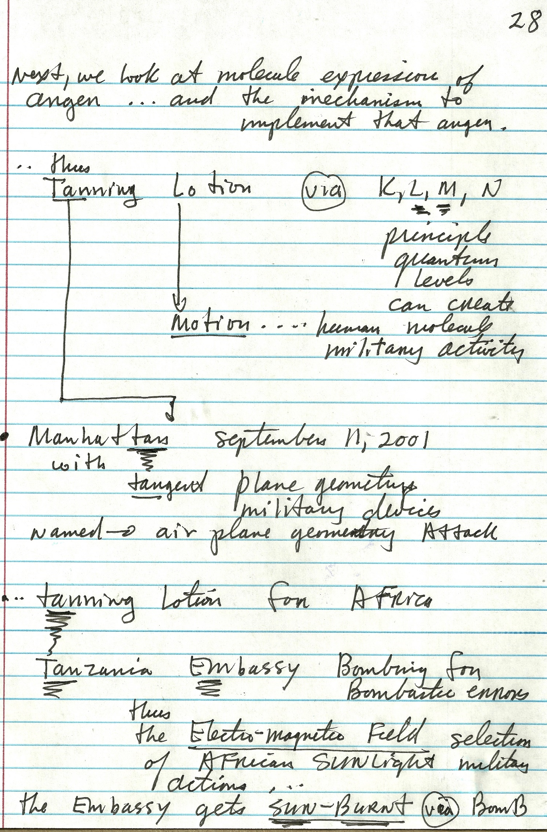 28
Next, we look at molecule expression of
anger ... and the mechanism to
implement that anger.
.. thus
Tanning Lotion via K, L, M, N
principle
quantum
levels
can create
Motion .... human molecule
military activity
Manhattan september 11, 2001
with
tangent plane geometry
military devices
named → air plane geometry Attack
... tanning Lotion for AFrica
Tanzania Embassy Bombing for
Bombastic errors
thus
the Electro-magnetic Field selection
of AFrican SUNLight military
actions ...
the Embassy gets SUN-BURNT via BomB